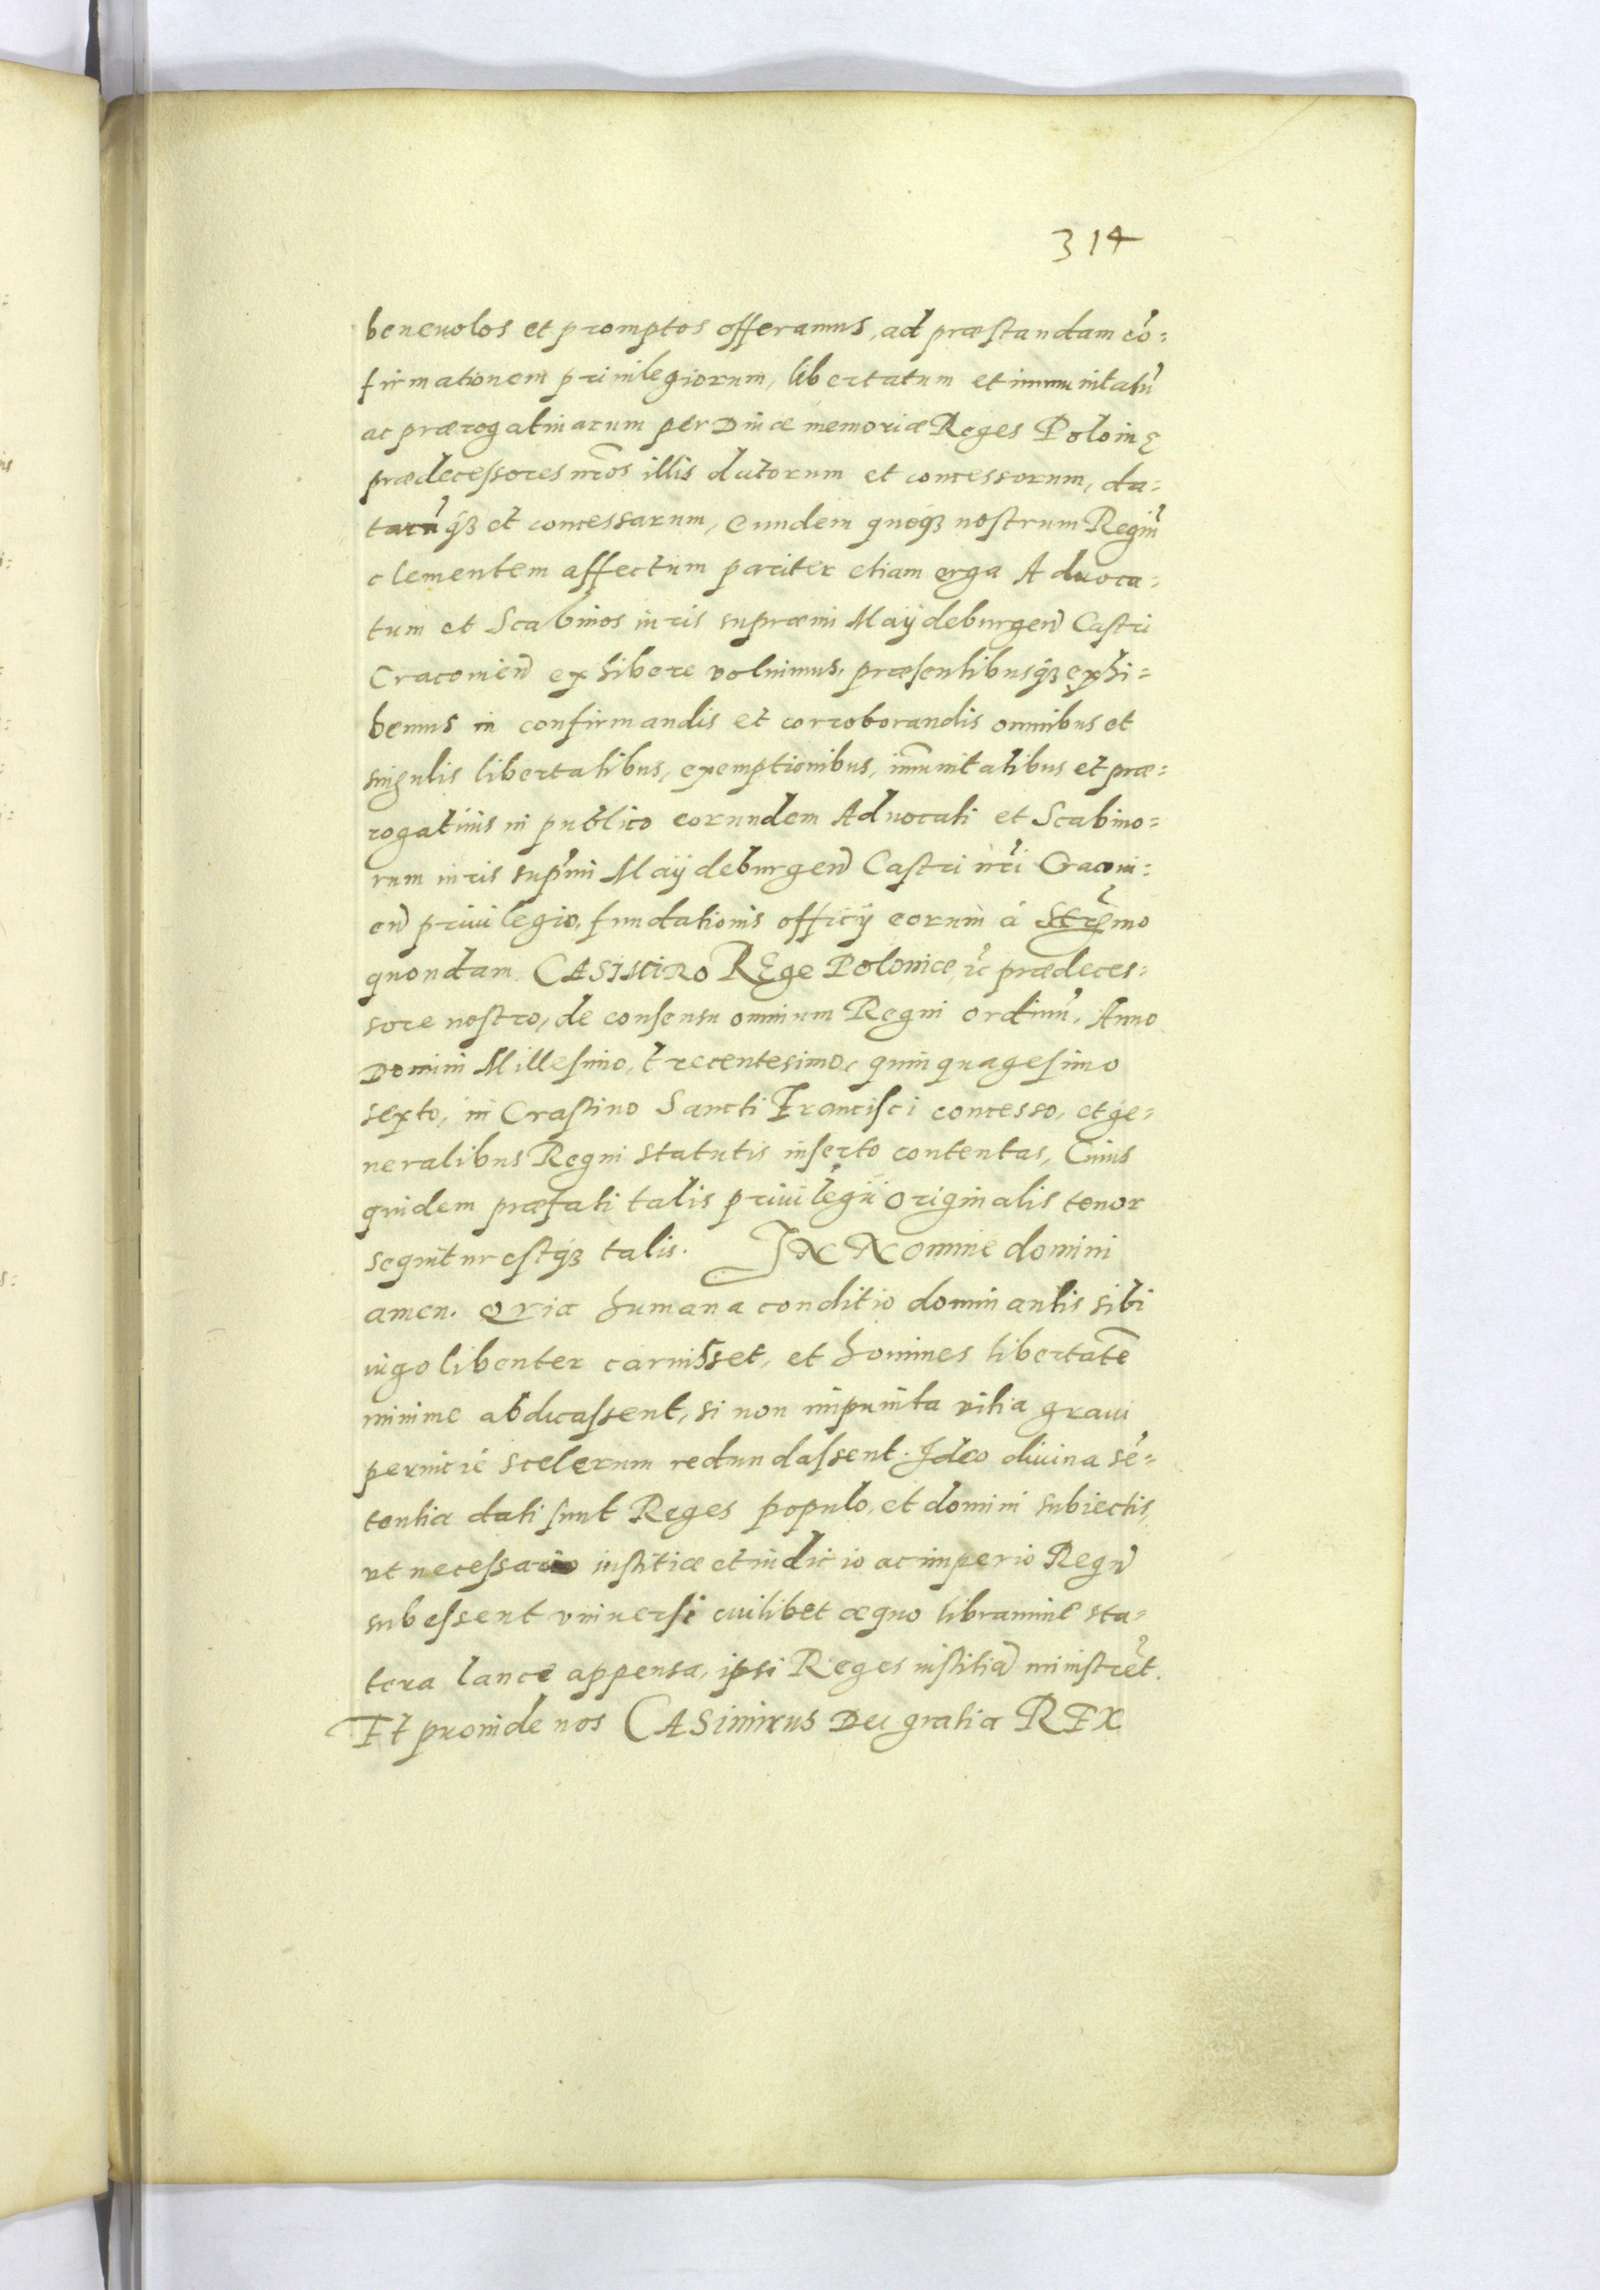 314
benevolos et promptos offeramus, ad præstandam cõ=
firmationem privilegiorum, libertatum et immunitatũ
ac prærogativarum per Divæ memoriæ Reges Polonię
prædecessores nr̃os illis datorum et concessorum, da=
tarũq̃ et concessarum, eundem quoq̃ nostrum Regiũ
clementem affectum pariter etiam erga Advoca=
tum et Scabinos iuris supræmi Maÿdeburgeñ Castri
Cracovieñ exhibere voluimus, præsentibusq̃ exhi=
bemus in confirmandis et corroborandis omnibus et
singulis libertatibus, exemptionibus, im̃unitatibus et præ=
rogativis in publico eorundem Advocati et Scabino=
rum iuris sup̃mi Maÿdeburgeñ Castri nr̃i Cracovi=
eñ privilegio, fundationis officÿ eorum á Serẽmo
quondam CASIMIRO REge Poloniæ, r̃c prædeces=
sore nostro, de consensu omnium Regni ordinũ, Anno
Domini Millesimo, trecentesimo, quinquagesimo
sexto, in Crastino Sancti Francisci concesso, et ge=
neralibus Regni statutis inserto contentas, Cuius
quidem præfati talis privilegii originalis tenor
sequitur estq̃ talis. IN Nomine domini
amen. Qvia humana conditio dominantis sibi
iugo libenter caruisset, et homines libertatẽ
minime abdicassent, si non impunita vitia gravi
pernicie scelerum redundassent. Ideo divina sẽ=
tentia dati sunt Reges populo, et domini subiectis,
vt necessario iustitiæ et iudicio ac imperio Regũ
subessent vniversi cuilibet æquo libramine sta=
tera lance appensa, ipsi Reges iustitiã ministrẽt.
Et proinde nos CASimirus Dei gratia REX